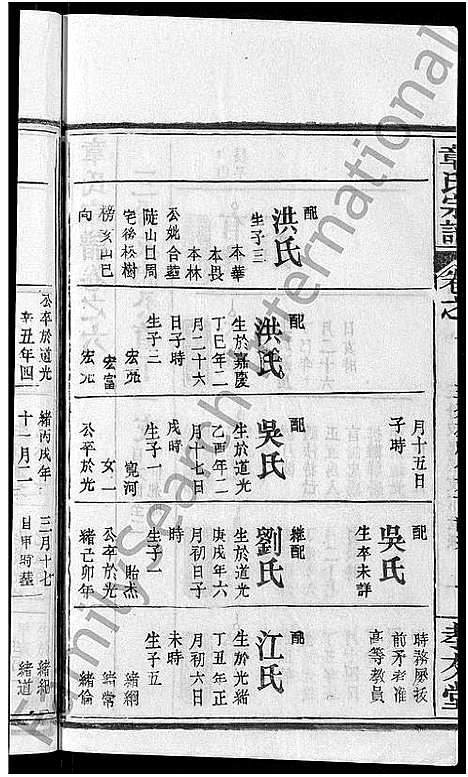 章氏宗譜
卷之
配
洪氏
生子三
本華
本畏
本林
公妣合塟
陡山日周
宅後松樹
榜亥山巳
向
配
洪氏
生於嘉慶
丁巳年二
月二十六
日子時
生子三
宏亮
宏富
宏光
公卒於道光
辛丑年四
月十五日
子時
配
吳氏
生於道光
乙酉年二
月十七日
戌時
生子一
寬河
女一
公卒於光
緒丙戌年
十一月二
配
吳氏
生卒未詳
繼配
劉氏
生於道光
庚戌年六
月初三日
時
生子一
貽杰
公卒於光
緒己卯年
三月十七
時務屡抜
前矛考准
高等教員
配
江氏
生於光緒
丁丑年正
月初六日
未時
生子五
緒綱
緒常
緒倫
緒紀
緒道
FamilySearch International